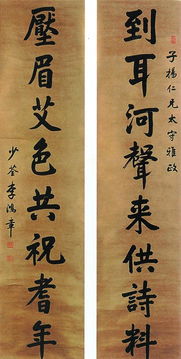 子楊仁兄太守雅政
到耳河聲来供詩料
壓眉艾色共祝耆年
少荃李鴻章